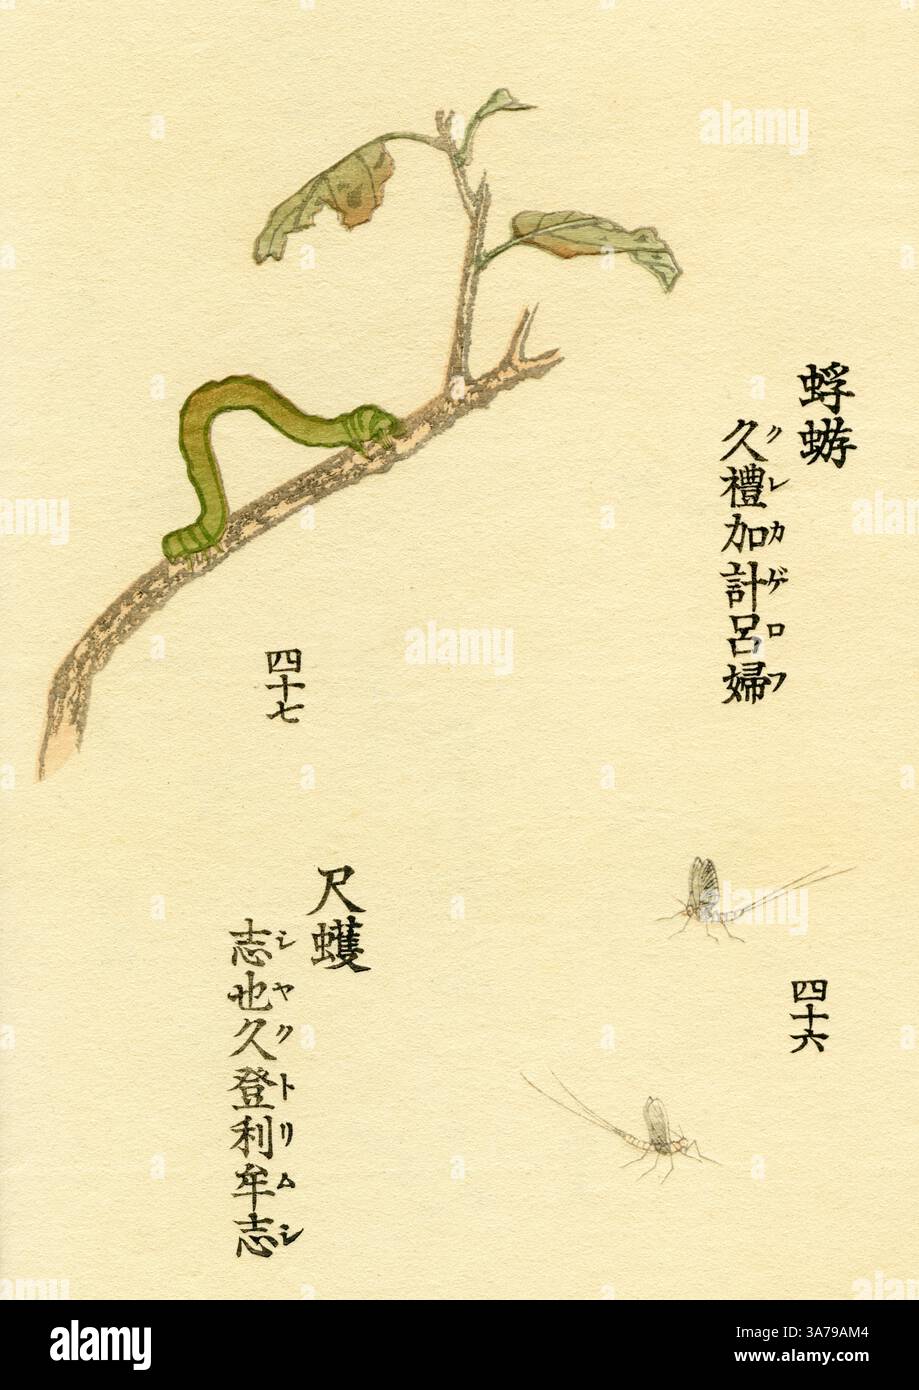 蜉蝣
久禮加計呂婦
クレカゲロフ
四十六
四十七
尺蠖
志也久登利牟志
シヤクトリムシ
alamy
Image ID: 3A79AM4
www.alamy.com